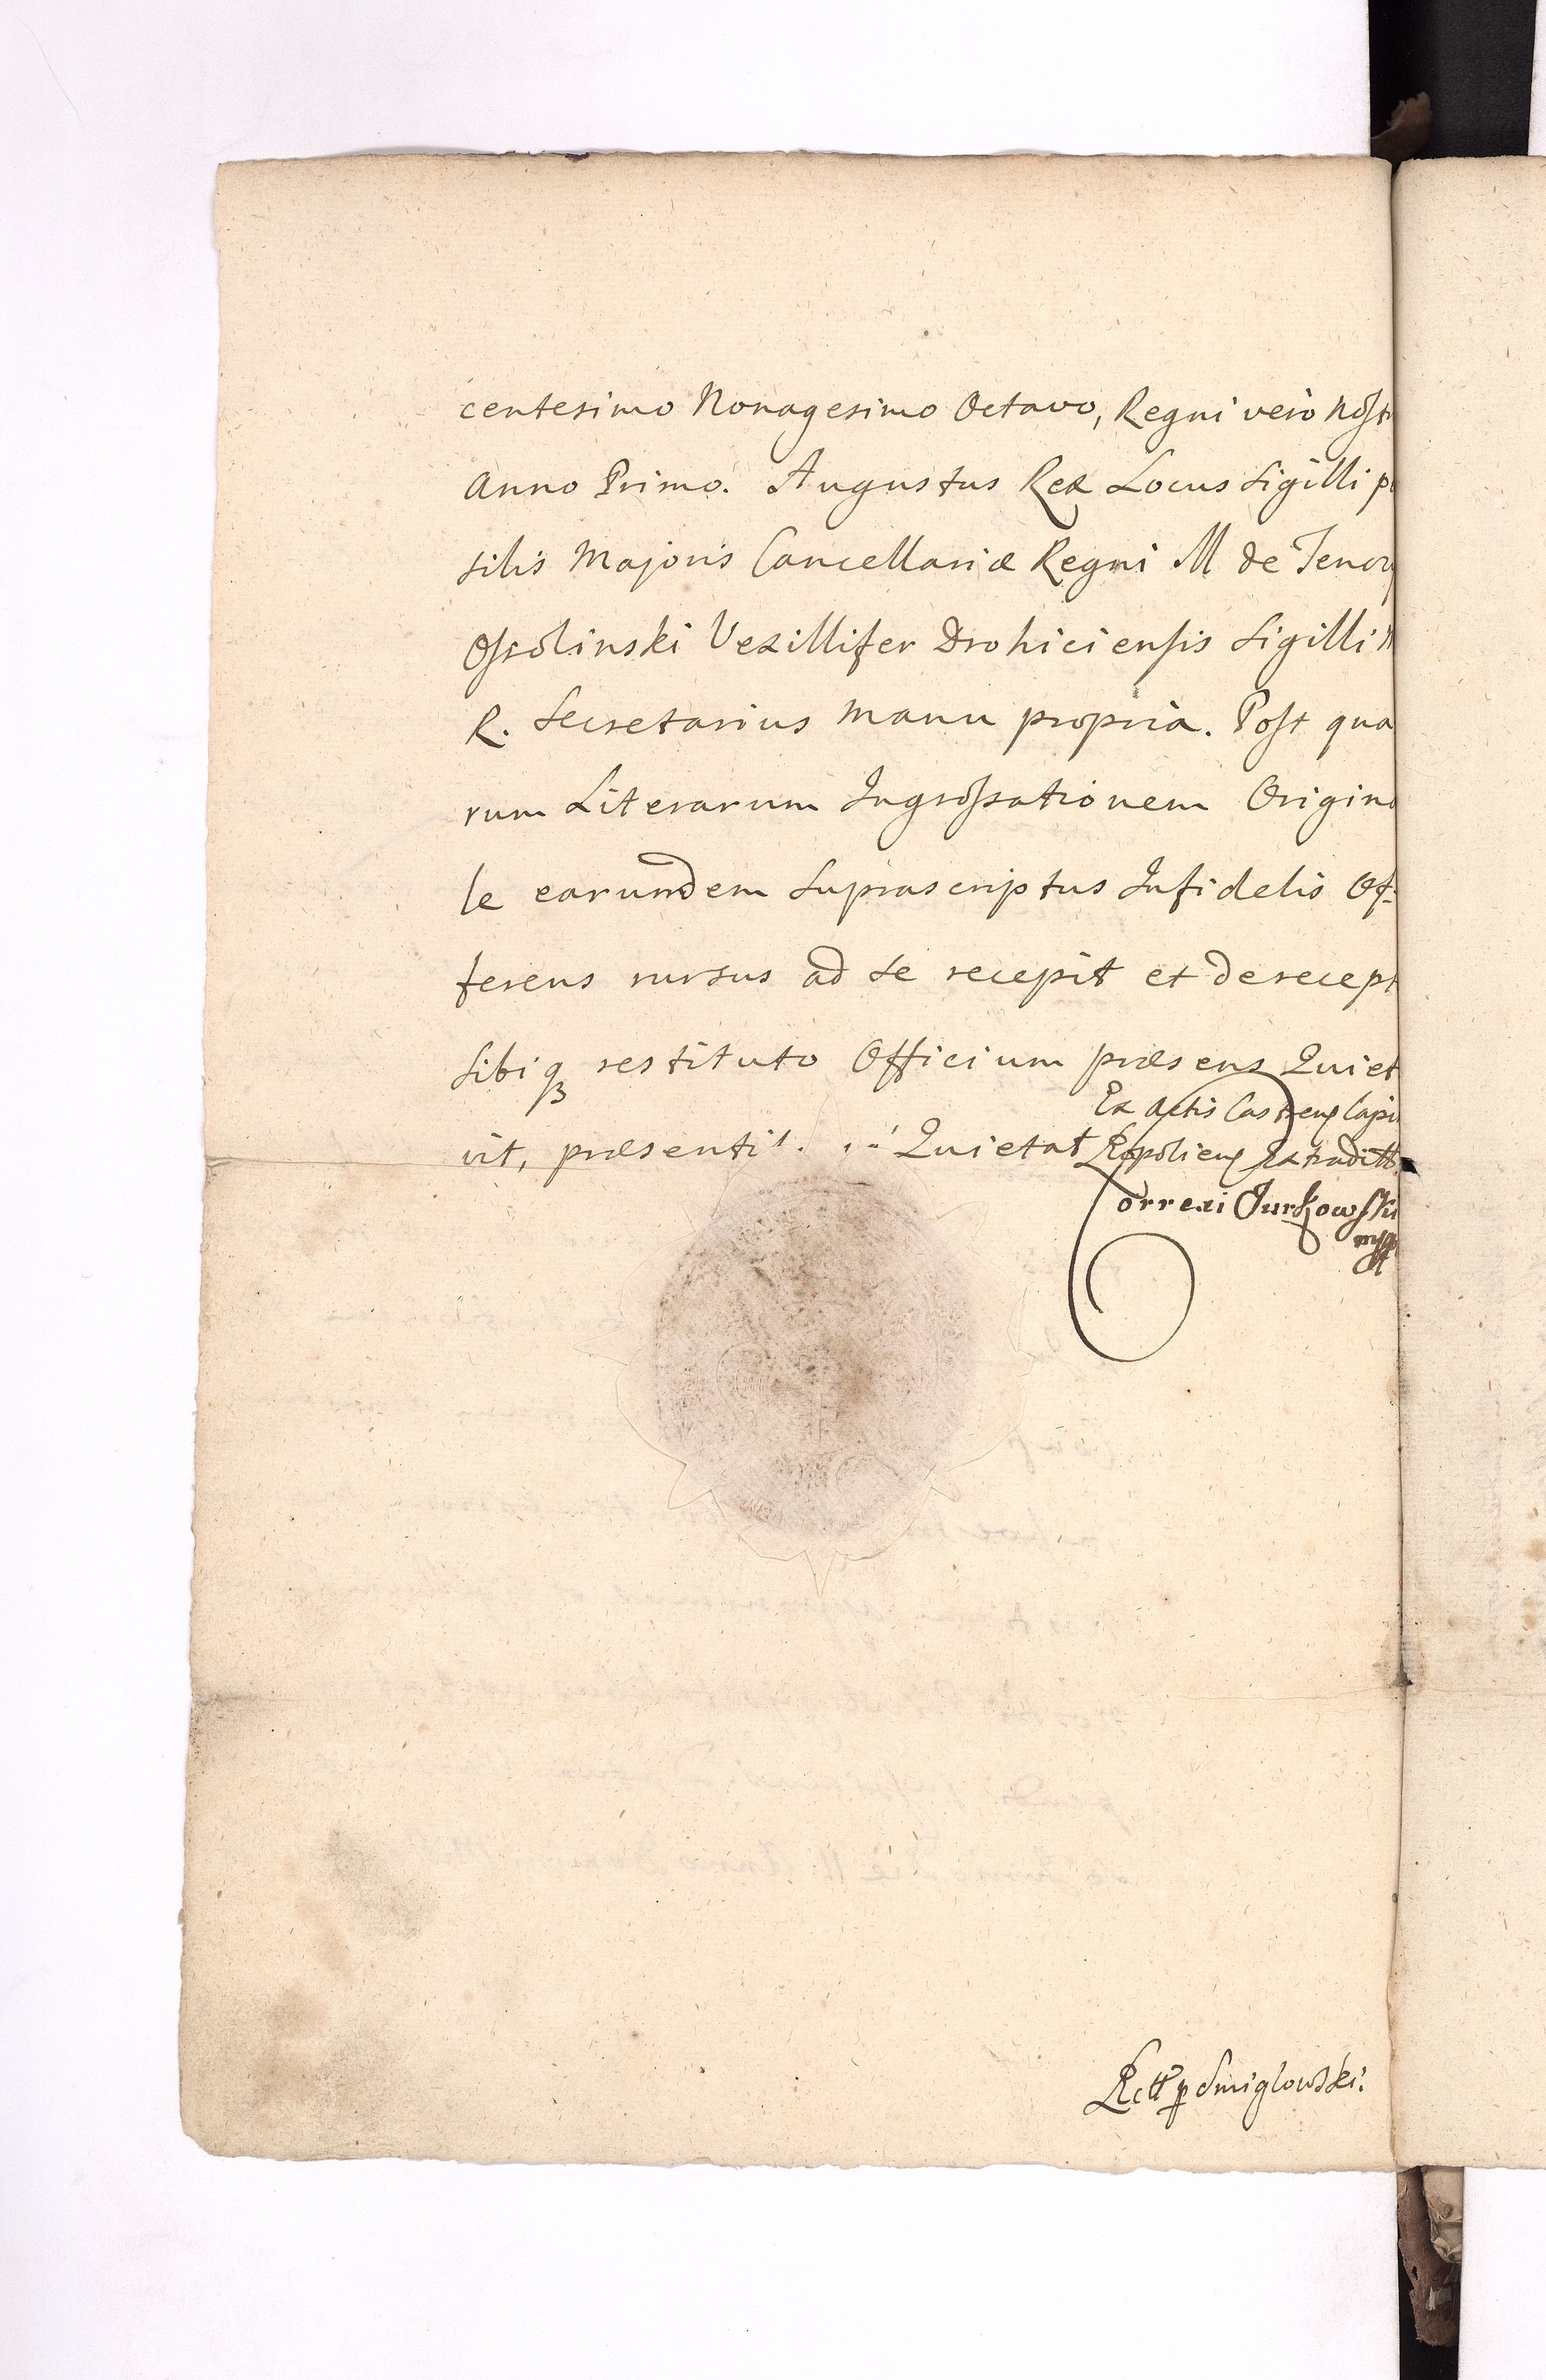 centesimo Nonagesimo Octavo, Regni verò Nostr
Anno Primo. Augustus Rex Locus Sigilli p
silis Majoris Cancellariæ Regni M de Tencz
Ossolinski Vexillifer Drohiciensis Sigilli M
R. Secretarius manu propria. Post qua
rum Literarum Ingrossationem Origina
le earundem Suprascriptus Infidelis Of:
ferens rursus ad se recepit et de recept
Sibiq restituto Officium præsens Quiet
vit, præsenti Quietat
Ex Actis Castren Capit
Leopolien Extradit
Correxi Jurkowski
mpp
Lectt p Smiglowski.